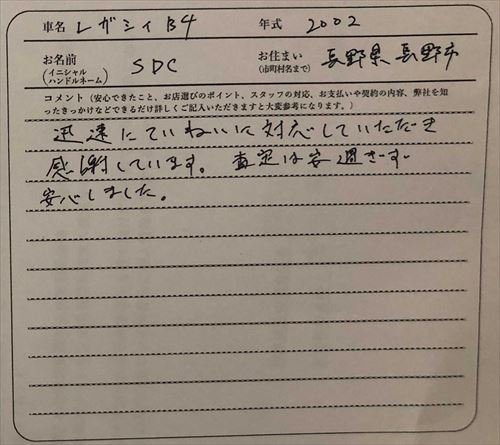 車名 レガシィB4 年式 2002
お名前 (イニシャル ハンドルネーム) SDC お住まい (市町村名まで) 長野県長野市
コメント(安心できたこと、お店選びのポイント、スタッフの対応、お支払いや契約の内容、弊社を知
ったきっかけなどできるだけ詳しくご記入いただきますと大変参考になります。)
迅速にていねいに対応していただき
感謝しています。査定は安過ぎず
安心しました。